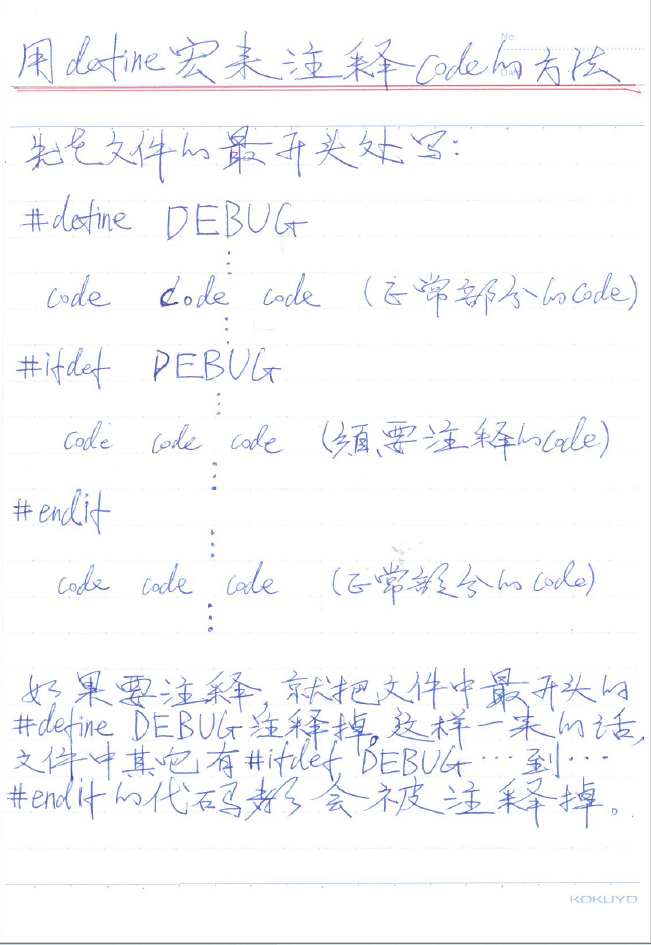 No.
Date
用define宏来注释code的方法
先在文件的最开头处写：
#define DEBUG
⋮
code code code (正常部分的code)
⋮
#ifdef DEBUG
⋮
code code code (須要注释的code)
⋮
#endif
⋮
code code code (正常部分的code)
⋮
如果要注释，就把文件中最开头的
#define DEBUG注释掉。这样一来的话，
文件中其它有#ifdef DEBUG…到…
#endif的代码都会被注释掉。
KOKUYO